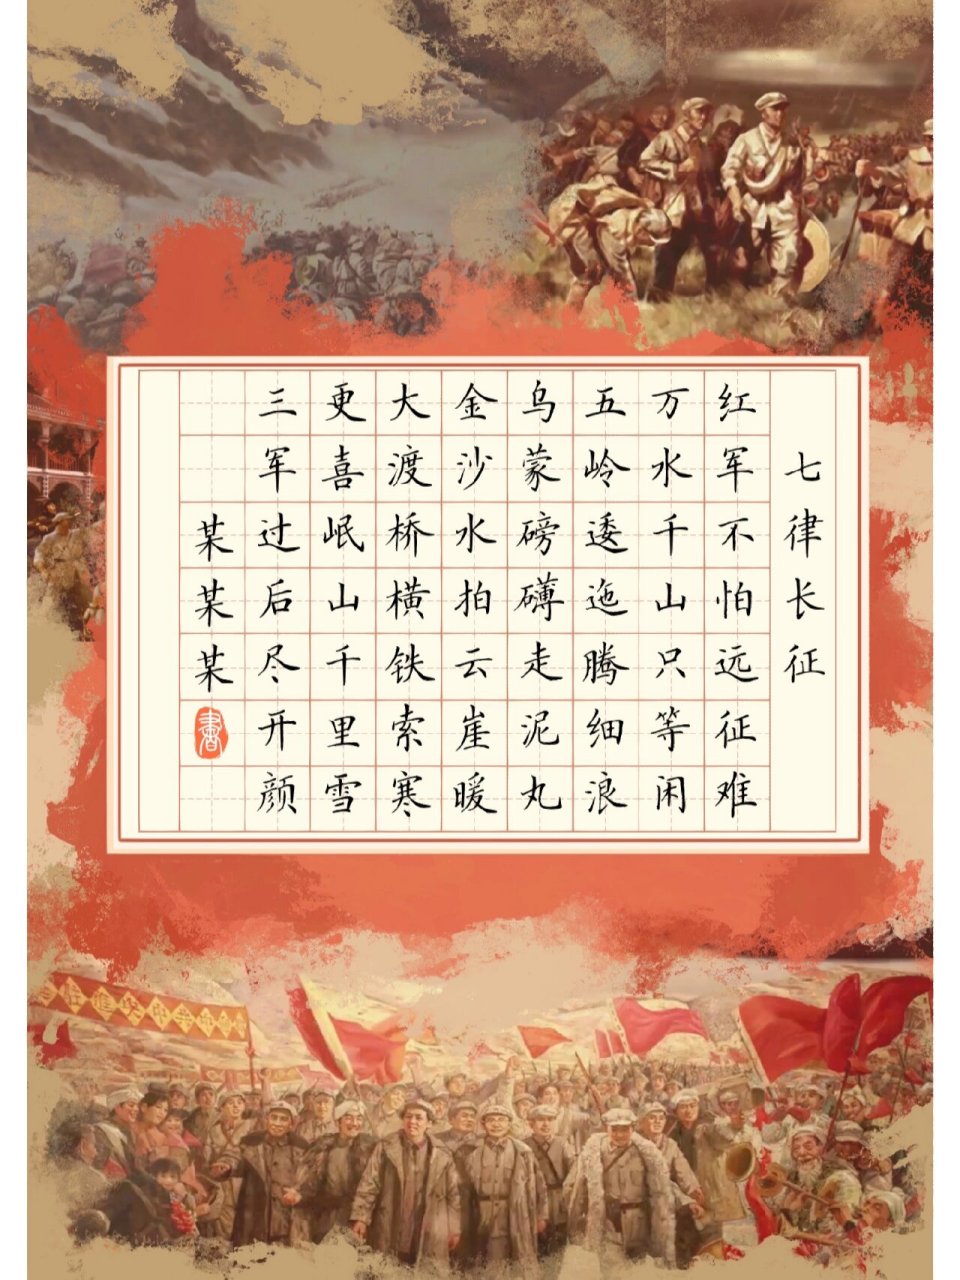 七律长征
红军不怕远征难
万水千山只等闲
五岭逶迤腾细浪
乌蒙磅礴走泥丸
金沙水拍云崖暖
大渡桥横铁索寒
更喜岷山千里雪
三军过后尽开颜
某某某書